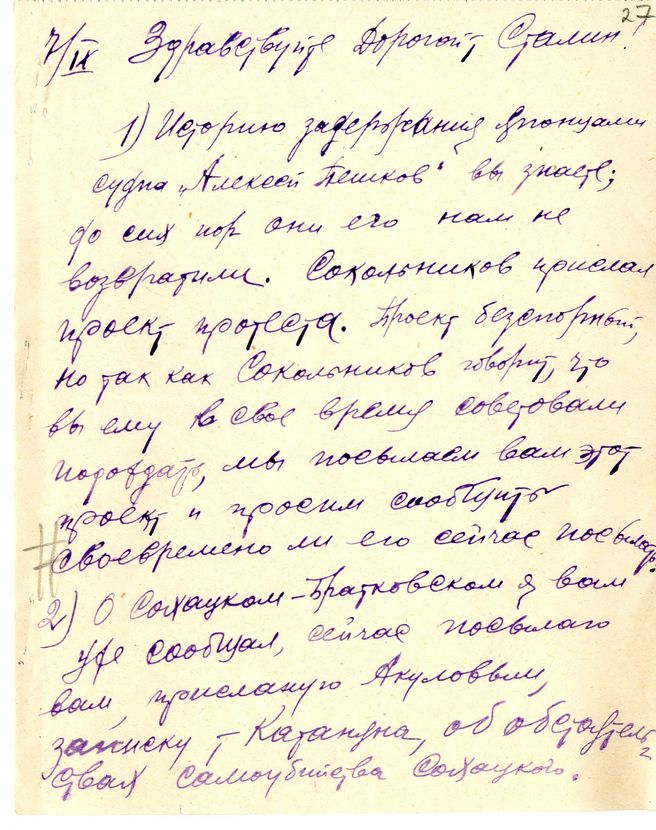 27
7/IX Здравствуйте Дорогой Сталин!
1) Историю задержания японцами
судна „Алексей Пешков" вы знаете;
до сих пор они его нам не
возвратили. Сокольников прислал
проект протеста. Проект безспорный,
но так как Сокольников говорит, что
вы ему в свое время советовали
подождать, мы посылаем вам этот
проект и просим сообщить
своевремено ли его сейчас посылать.
2) О Сохацком-Братковском я вам
уже сообщал, сейчас посылаю
вам, присланую Акуловым,
записку т. Катаняна, об обстоятель-
ствах самоубийства Сохацкого.